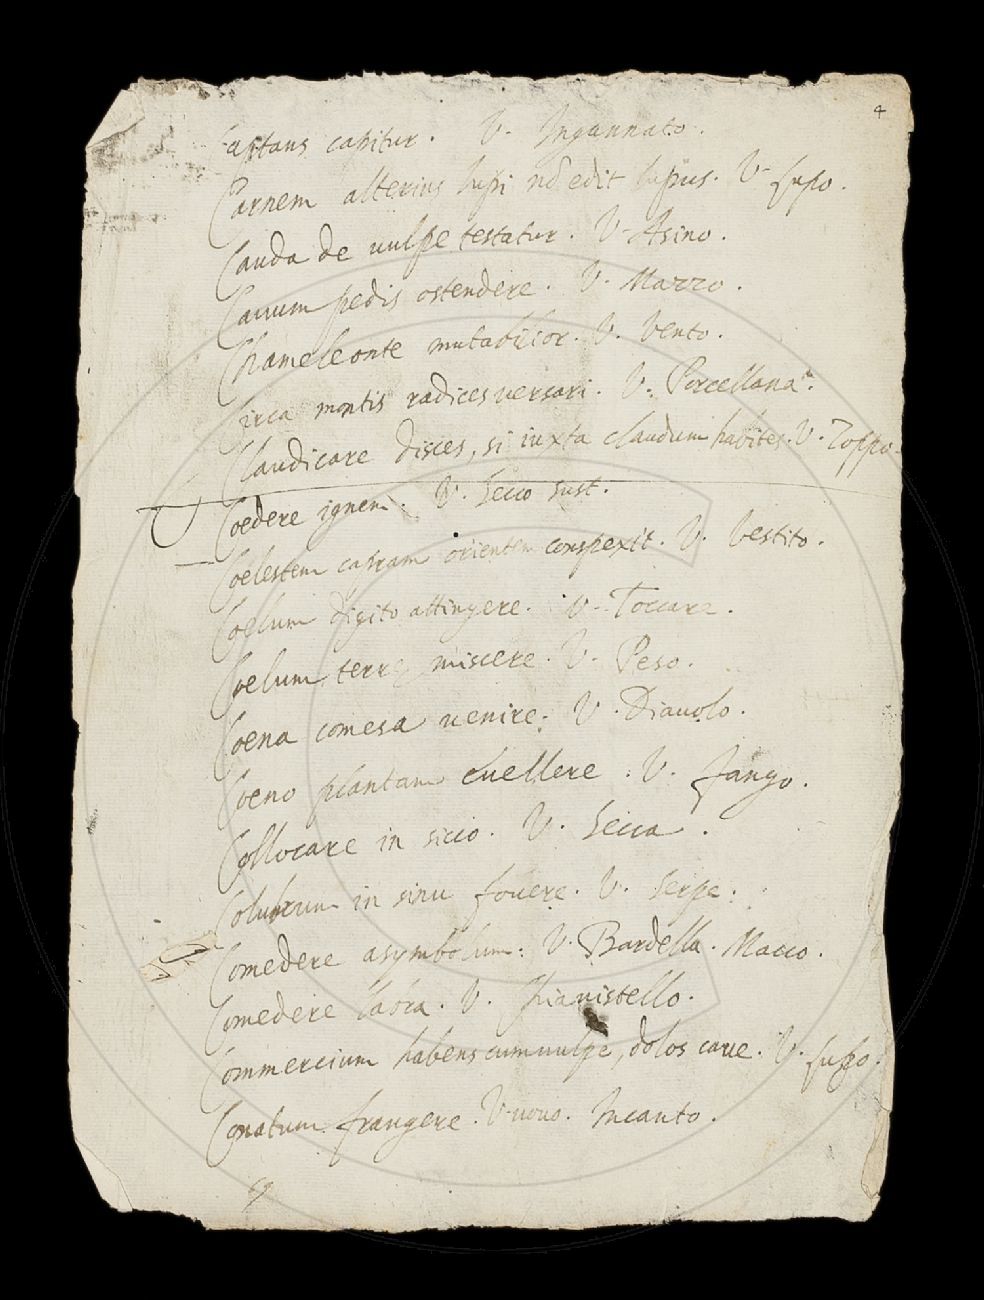 4
Captans capitur. V. Ingannato.
Carnem alterius lupi nō edit lupus. V. Lupo.
Cauda de uulpe testatur. V. Asino.
Cauum pedis ostendere. V. Mazzo.
Chameleonte mutabilior. V. Vento.
Circa montis radices uersari. V. Porcellana.
Claudicare disces, si iuxta claudum habites. V. Zoppo.
Coedere ignem. V. Secco sust.
Coelestem capram orientem conspexit. V. Vestito.
Coelum digito attingere. V. Toccare.
Coelum terre miscere. V. Peso.
Coena comesa uenire. V. Diauolo.
Coeno plantam euellere. V. Fango.
Collocare in sicco. V. Secca.
Colubrum in sinu fouere. V. Serpe.
Comedere asymbolum. V. Bardella. Macco.
Comedere V.
Commercium habens cum uulpe, dolos caue. V. Lupo.
Conatum frangere. V. uouo. Incanto.